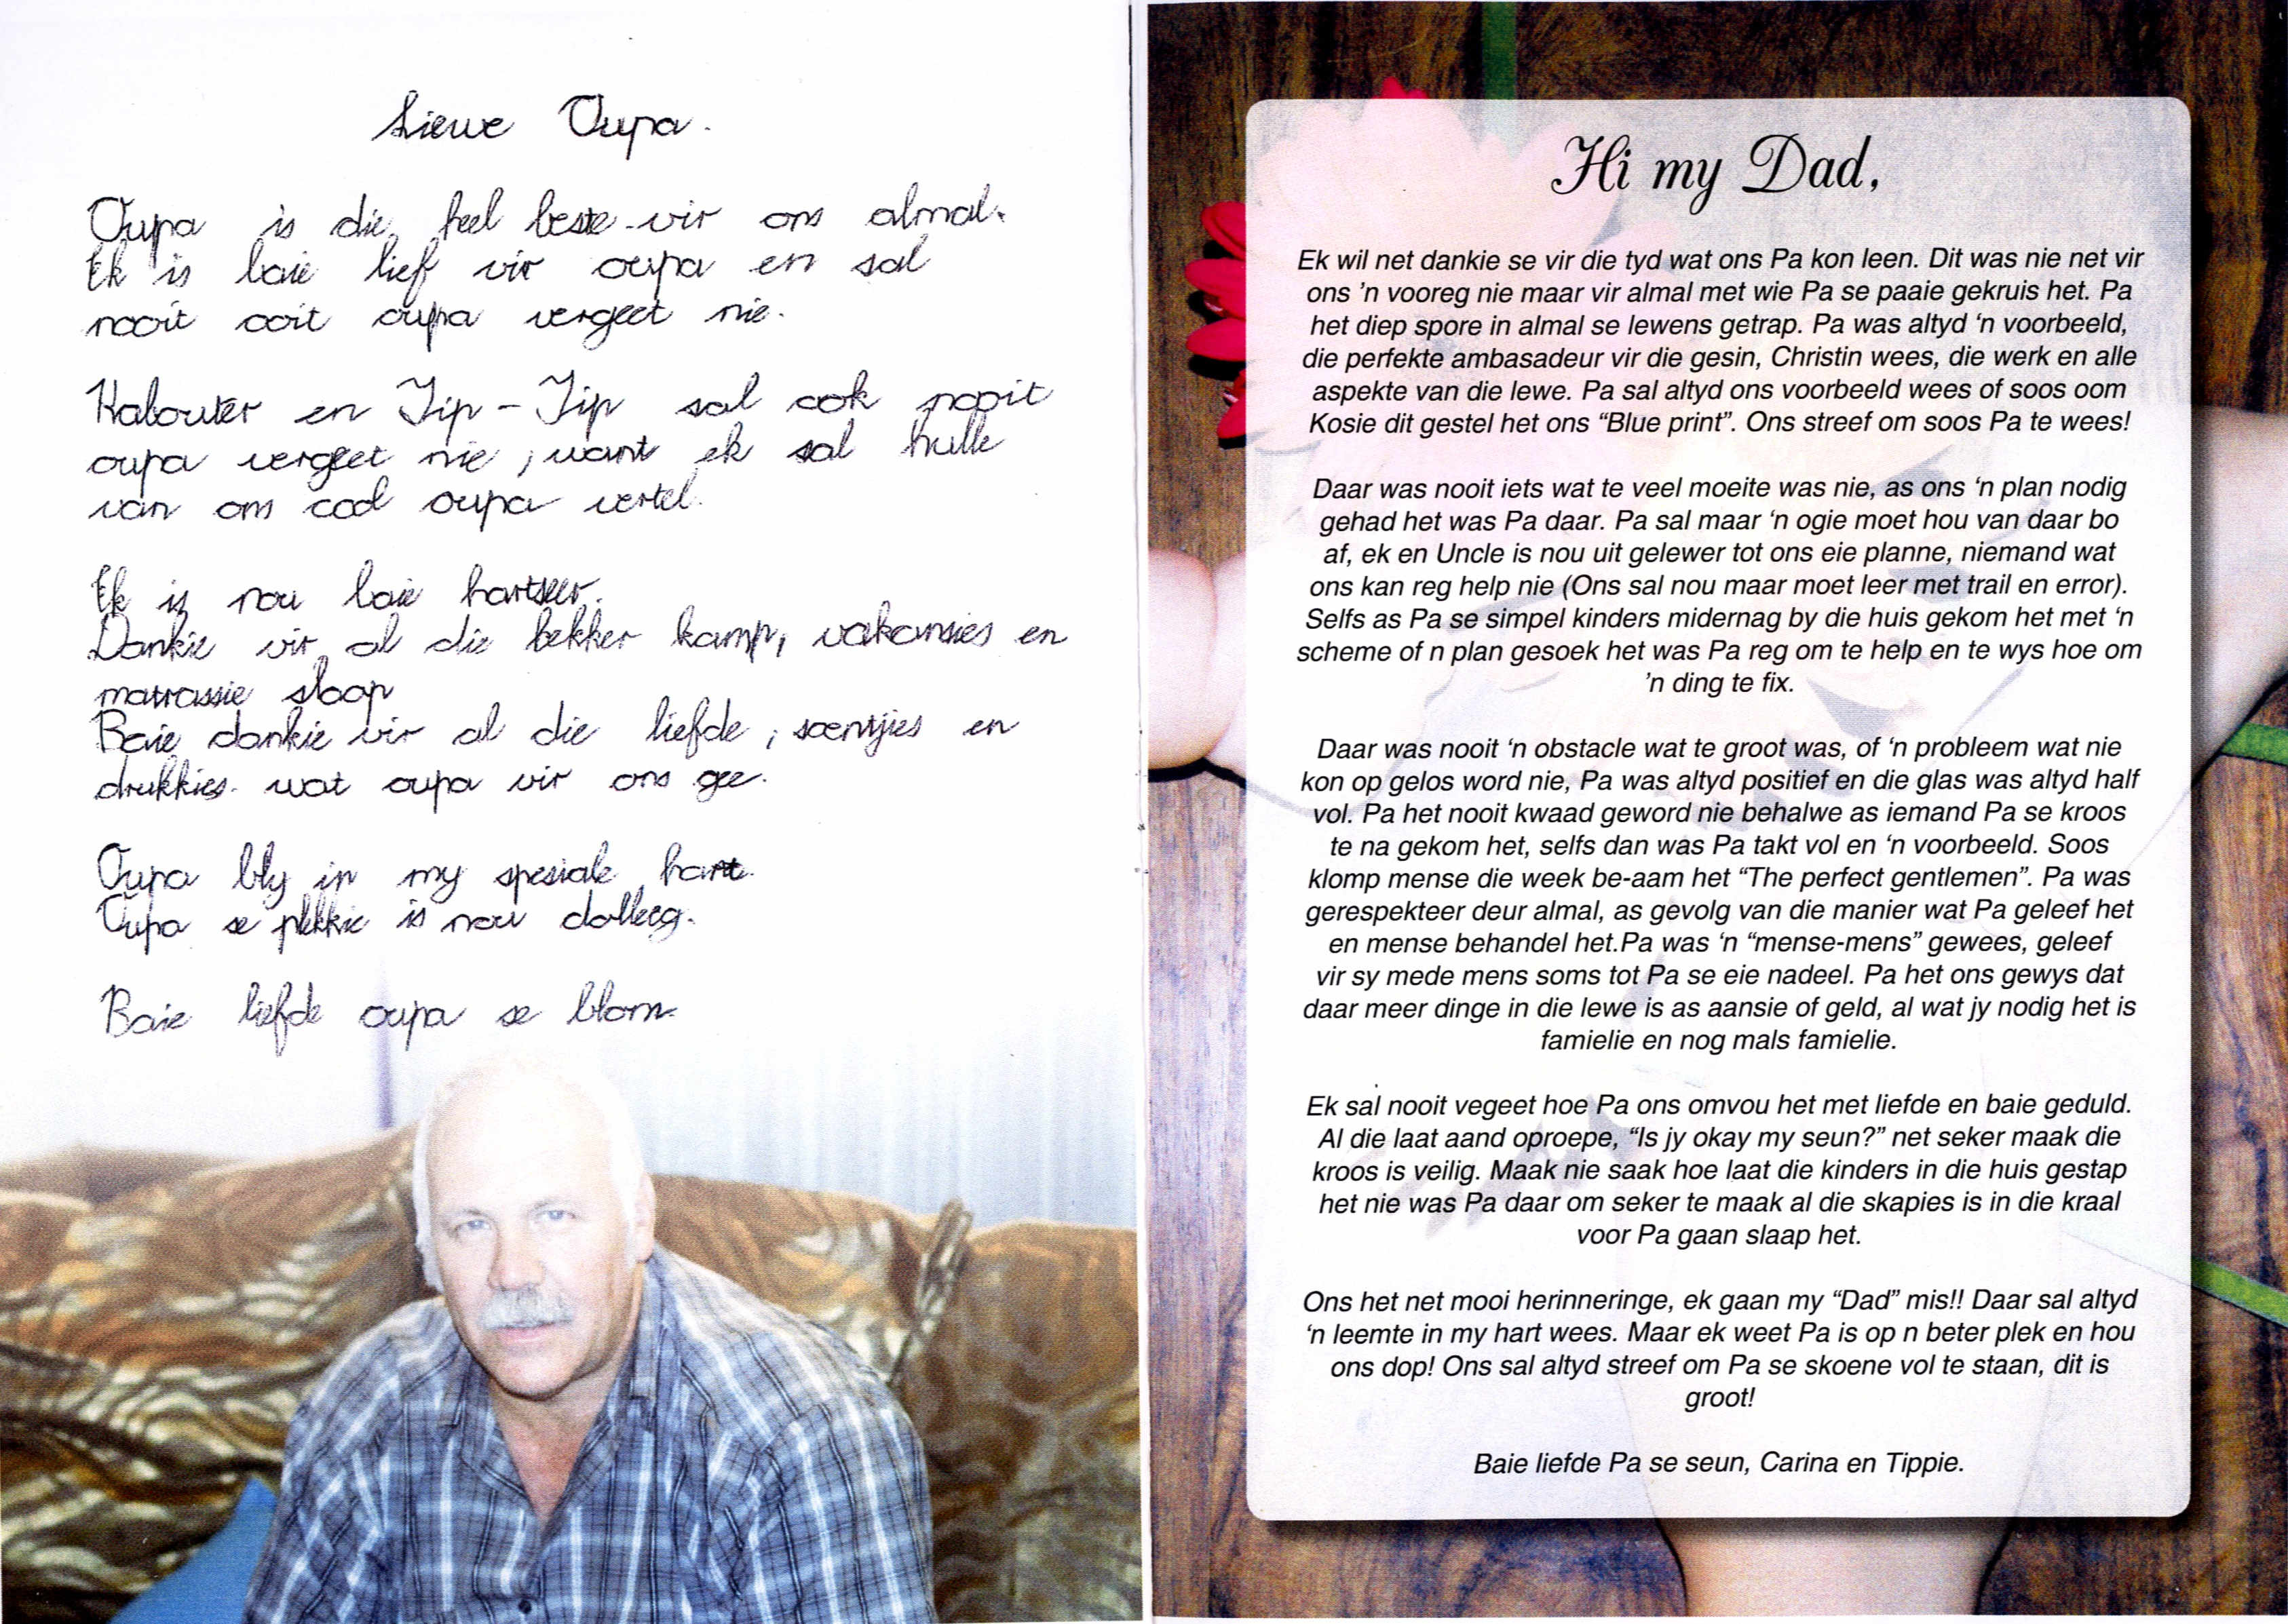 Liewe Oupa.
Oupa is die heel beste vir ons almal.
Ek is baie lief vir oupa en sal
nooit ooit oupa vergeet nie.
Kabouter en Tip-Tip sal ook nooit
oupa vergeet nie, want ek sal hulle
van ons cool oupa vertel.
Ek is nou baie hartseer.
Dankie vir al die lekker kamp, vakansies en
matrassie slaap
Baie dankie vir al die liefde, soentjies en
drukkies. wat oupa vir ons gee.
Oupa bly in my spesiale hart.
Oupa se plekkie is nou dolleeg.
Baie liefde oupa se blom.
Hi my Dad,
Ek wil net dankie se vir die tyd wat ons Pa kon leen. Dit was nie net vir
ons 'n vooreg nie maar vir almal met wie Pa se paaie gekruis het. Pa
het diep spore in almal se lewens getrap. Pa was altyd ‘n voorbeeld,
die perfekte ambasadeur vir die gesin, Christin wees, die werk en alle
aspekte van die lewe. Pa sal altyd ons voorbeeld wees of soos oom
Kosie dit gestel het ons “Blue print”. Ons streef om soos Pa te wees!
Daar was nooit iets wat te veel moeite was nie, as ons ‘n plan nodig
gehad het was Pa daar. Pa sal maar ‘n ogie moet hou van daar bo
af, ek en Uncle is nou uit gelewer tot ons eie planne, niemand wat
ons kan reg help nie (Ons sal nou maar moet leer met trail en error).
Selfs as Pa se simpel kinders midernag by die huis gekom het met ‘n
scheme of n plan gesoek het was Pa reg om te help en te wys hoe om
’n ding te fix.
Daar was nooit ‘n obstacle wat te groot was, of ‘n probleem wat nie
kon op gelos word nie, Pa was altyd positief en die glas was altyd half
vol. Pa het nooit kwaad geword nie behalwe as iemand Pa se kroos
te na gekom het, selfs dan was Pa takt vol en ‘n voorbeeld. Soos
klomp mense die week be-aam het “The perfect gentlemen”. Pa was
gerespekteer deur almal, as gevolg van die manier wat Pa geleef het
en mense behandel het.Pa was ‘n “mense-mens” gewees, geleef
vir sy mede mens soms tot Pa se eie nadeel. Pa het ons gewys dat
daar meer dinge in die lewe is as aansie of geld, al wat jy nodig het is
famielie en nog mals famielie.
Ek sal nooit vegeet hoe Pa ons omvou het met liefde en baie geduld.
Al die laat aand oproepe, “Is jy okay my seun?” net seker maak die
kroos is veilig. Maak nie saak hoe laat die kinders in die huis gestap
het nie was Pa daar om seker te maak al die skapies is in die kraal
voor Pa gaan slaap het.
Ons het net mooi herinneringe, ek gaan my “Dad” mis!! Daar sal altyd
‘n leemte in my hart wees. Maar ek weet Pa is op n beter plek en hou
ons dop! Ons sal altyd streef om Pa se skoene vol te staan, dit is
groot!
Baie liefde Pa se seun, Carina en Tippie.